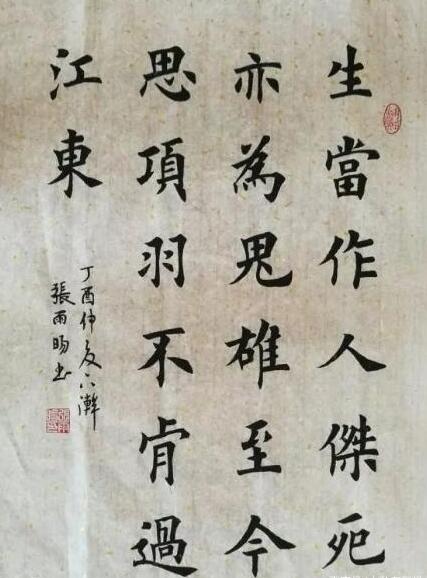 生當作人傑死
亦為鬼雄至今
思項羽不肯過
江東
丁酉仲夏六
張雨